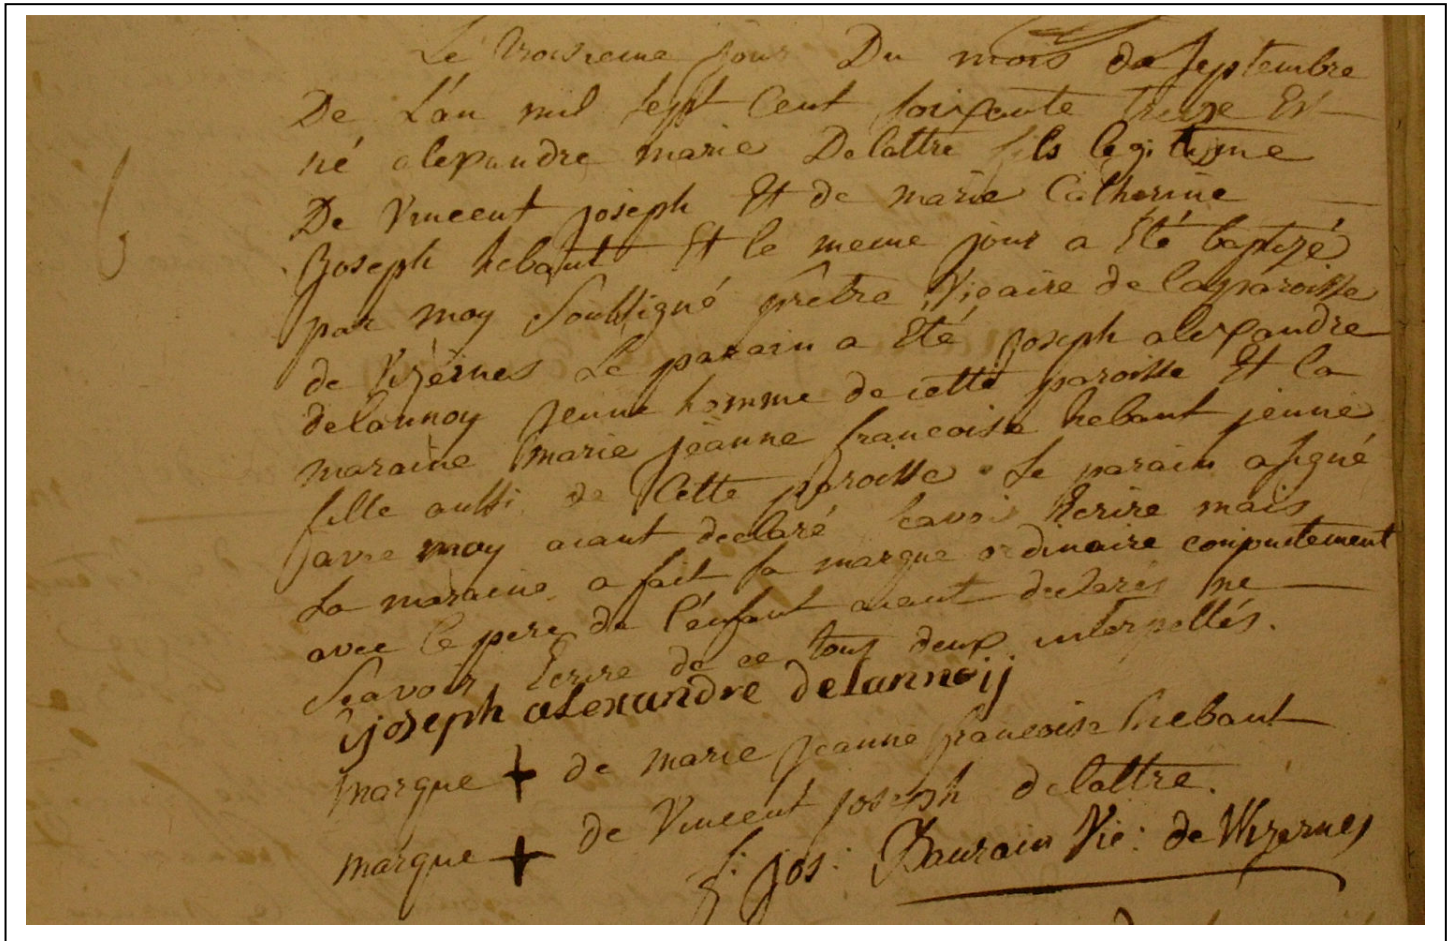 Le troisieme jour Du mois de Septembre
De L'an mil sept Cent soixante treize Est
né alexandre marie Delattre fils legitime
De Vincent joseph Et de marie Catherine
Joseph hebant Et le meme jour a Eté baptizé
par moy soussigné prêtre Vicaire de la paroisse
de Wizernes Le parain a Eté joseph alexandre
delannoy jeune homme de cette paroisse Et la
maraine marie jeanne francoise hebant jeune
fille aussi de Cette paroisse. Le parain a signé
avec moy aiant declaré scavoir Ecrire mais
La maraine a fait sa marque ordinaire conjointement
avec le pere de l'enfant aiant declarés ne
Scavoir Ecrire de ce tous deux interpellés.
joseph alexandre delannoij
marque + de marie jeanne francoise hebant
marque + de Vincent joseph delattre.
f: jos: Baurain Vic: de Wizernes
6